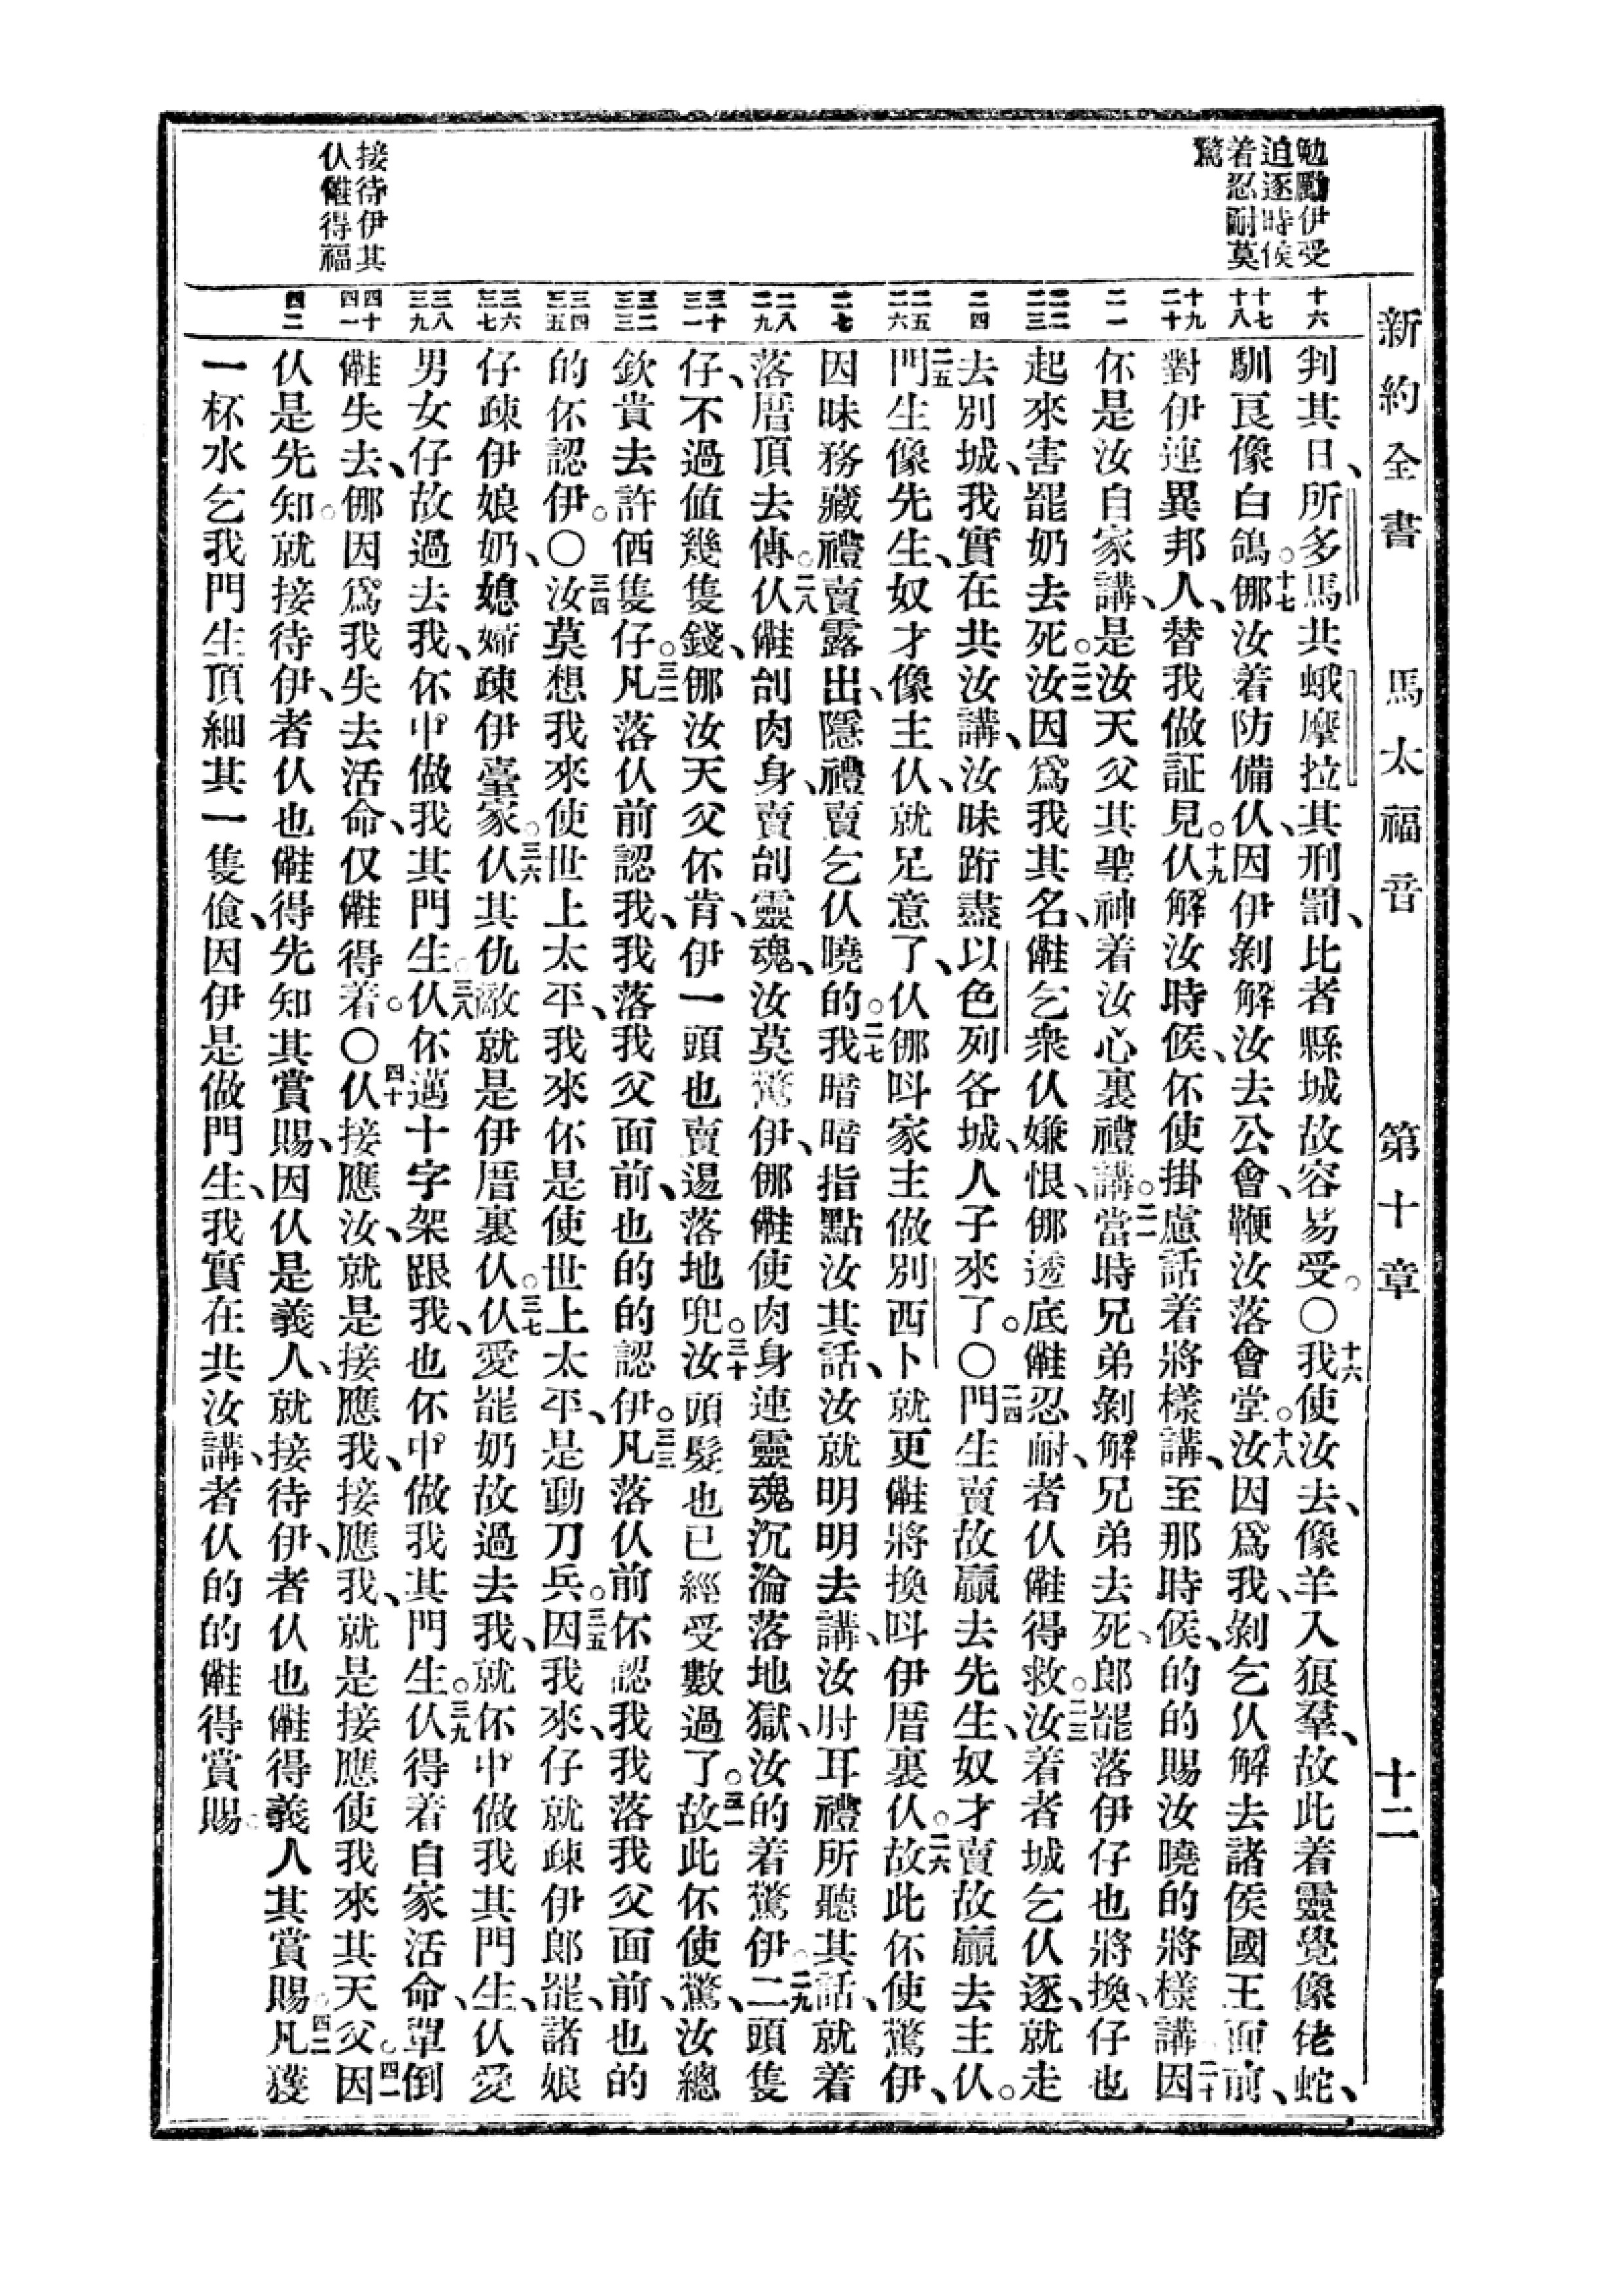 新約全書 馬太福音 第十章 十二
勉勵伊受
迫逐時候
着忍耐莫
驚
接待伊其
仈㒰得福
十六
十七
十八
十九
二十
二一
二二
二三
二四
二五
二六
二七
二八
二九
三十
三一
三二
三三
三四
三五
三六
三七
三八
三九
四十
四一
四二
判其日、所多馬共蛾摩拉其刑罰、比者縣城故容易受。〇十六我使汝去、像羊入狼羣、故此着靈覺像佬蛇、
馴良像白鴿。十七㑚汝着防備仈、因伊剝解汝去公會、鞭汝落會堂。十八汝因爲我、剝乞仈解去諸侯國王面前、
對伊連異邦人、替我做証見。十九仈解汝時候、伓使掛慮話着將樣講、至那時候、的的賜汝曉的將樣講、二十因
伓是汝自家講、是汝天父其聖神着汝心裏禮講。二一當時兄弟剝解兄弟去死、郎罷落伊仔也將換、仔也
起來害罷奶去死。二二汝因爲我其名、㒰乞衆仈嫌恨、㑚透底㒰忍耐、者仈㒰得救。二三汝着者城乞仈逐、就走
去別城、我實在共汝講、汝昧跲盡以色列各城、人子來了。〇二四門生賣故贏去先生、奴才賣故贏去主仈。
二五門生像先生、奴才像主仈、就足意了、仈㑚呌家主做別西卜、就更㒰將換呌伊厝裏仈。二六故此伓使驚伊、
因昧務藏禮賣露出、隱禮賣乞仈曉的。二七我暗暗指點汝其話、汝就明明去講、汝肘耳禮所聽其話、就着
落厝頂去傳。二八仈㒰刣肉身、賣刣靈魂、汝莫驚伊、㑚㒰使肉身連靈魂沉淪落地獄、汝的着驚伊。二九二頭隻
仔、不過值幾隻錢、㑚汝天父伓肯、伊一頭也賣逿落地兜。三十汝頭髮也已經受數過了。三一故此伓使驚、汝總
欽貴去許価隻仔。三二凡落仈前認我、我落我父面前、也的的認伊。三三凡落仈前伓認我、我落我父面前、也的
的伓認伊。〇三四汝莫想我來使世上太平、我來伓是使世上太平、是動刀兵。三五因我來、仔就疎伊郎罷、諸娘
仔疎伊娘奶、媳婦疎伊臺家。三六仈其仇敵就是伊厝裏仈。三七仈愛罷奶故過去我、就伓中做我其門生、仈愛
男女仔故過去我、伓中做我其門生。三八仈伓邁十字架跟我、也伓中做我其門生。三九仈得着自家活命、單倒
㒰失去、㑚因爲我失去活命、仅㒰得着。〇四十仈接應汝、就是接應我、接應我、就是接應使我來其天父。四一因
仈是先知。就接待伊、者仈也㒰得先知其賞賜、因仈是義人、就接待伊、者仈也㒰得義人其賞賜。四二凡獲
一杯水乞我門生頂細其一隻飱、因伊是做門生、我實在共汝講、者仈的的㒰得賞賜。